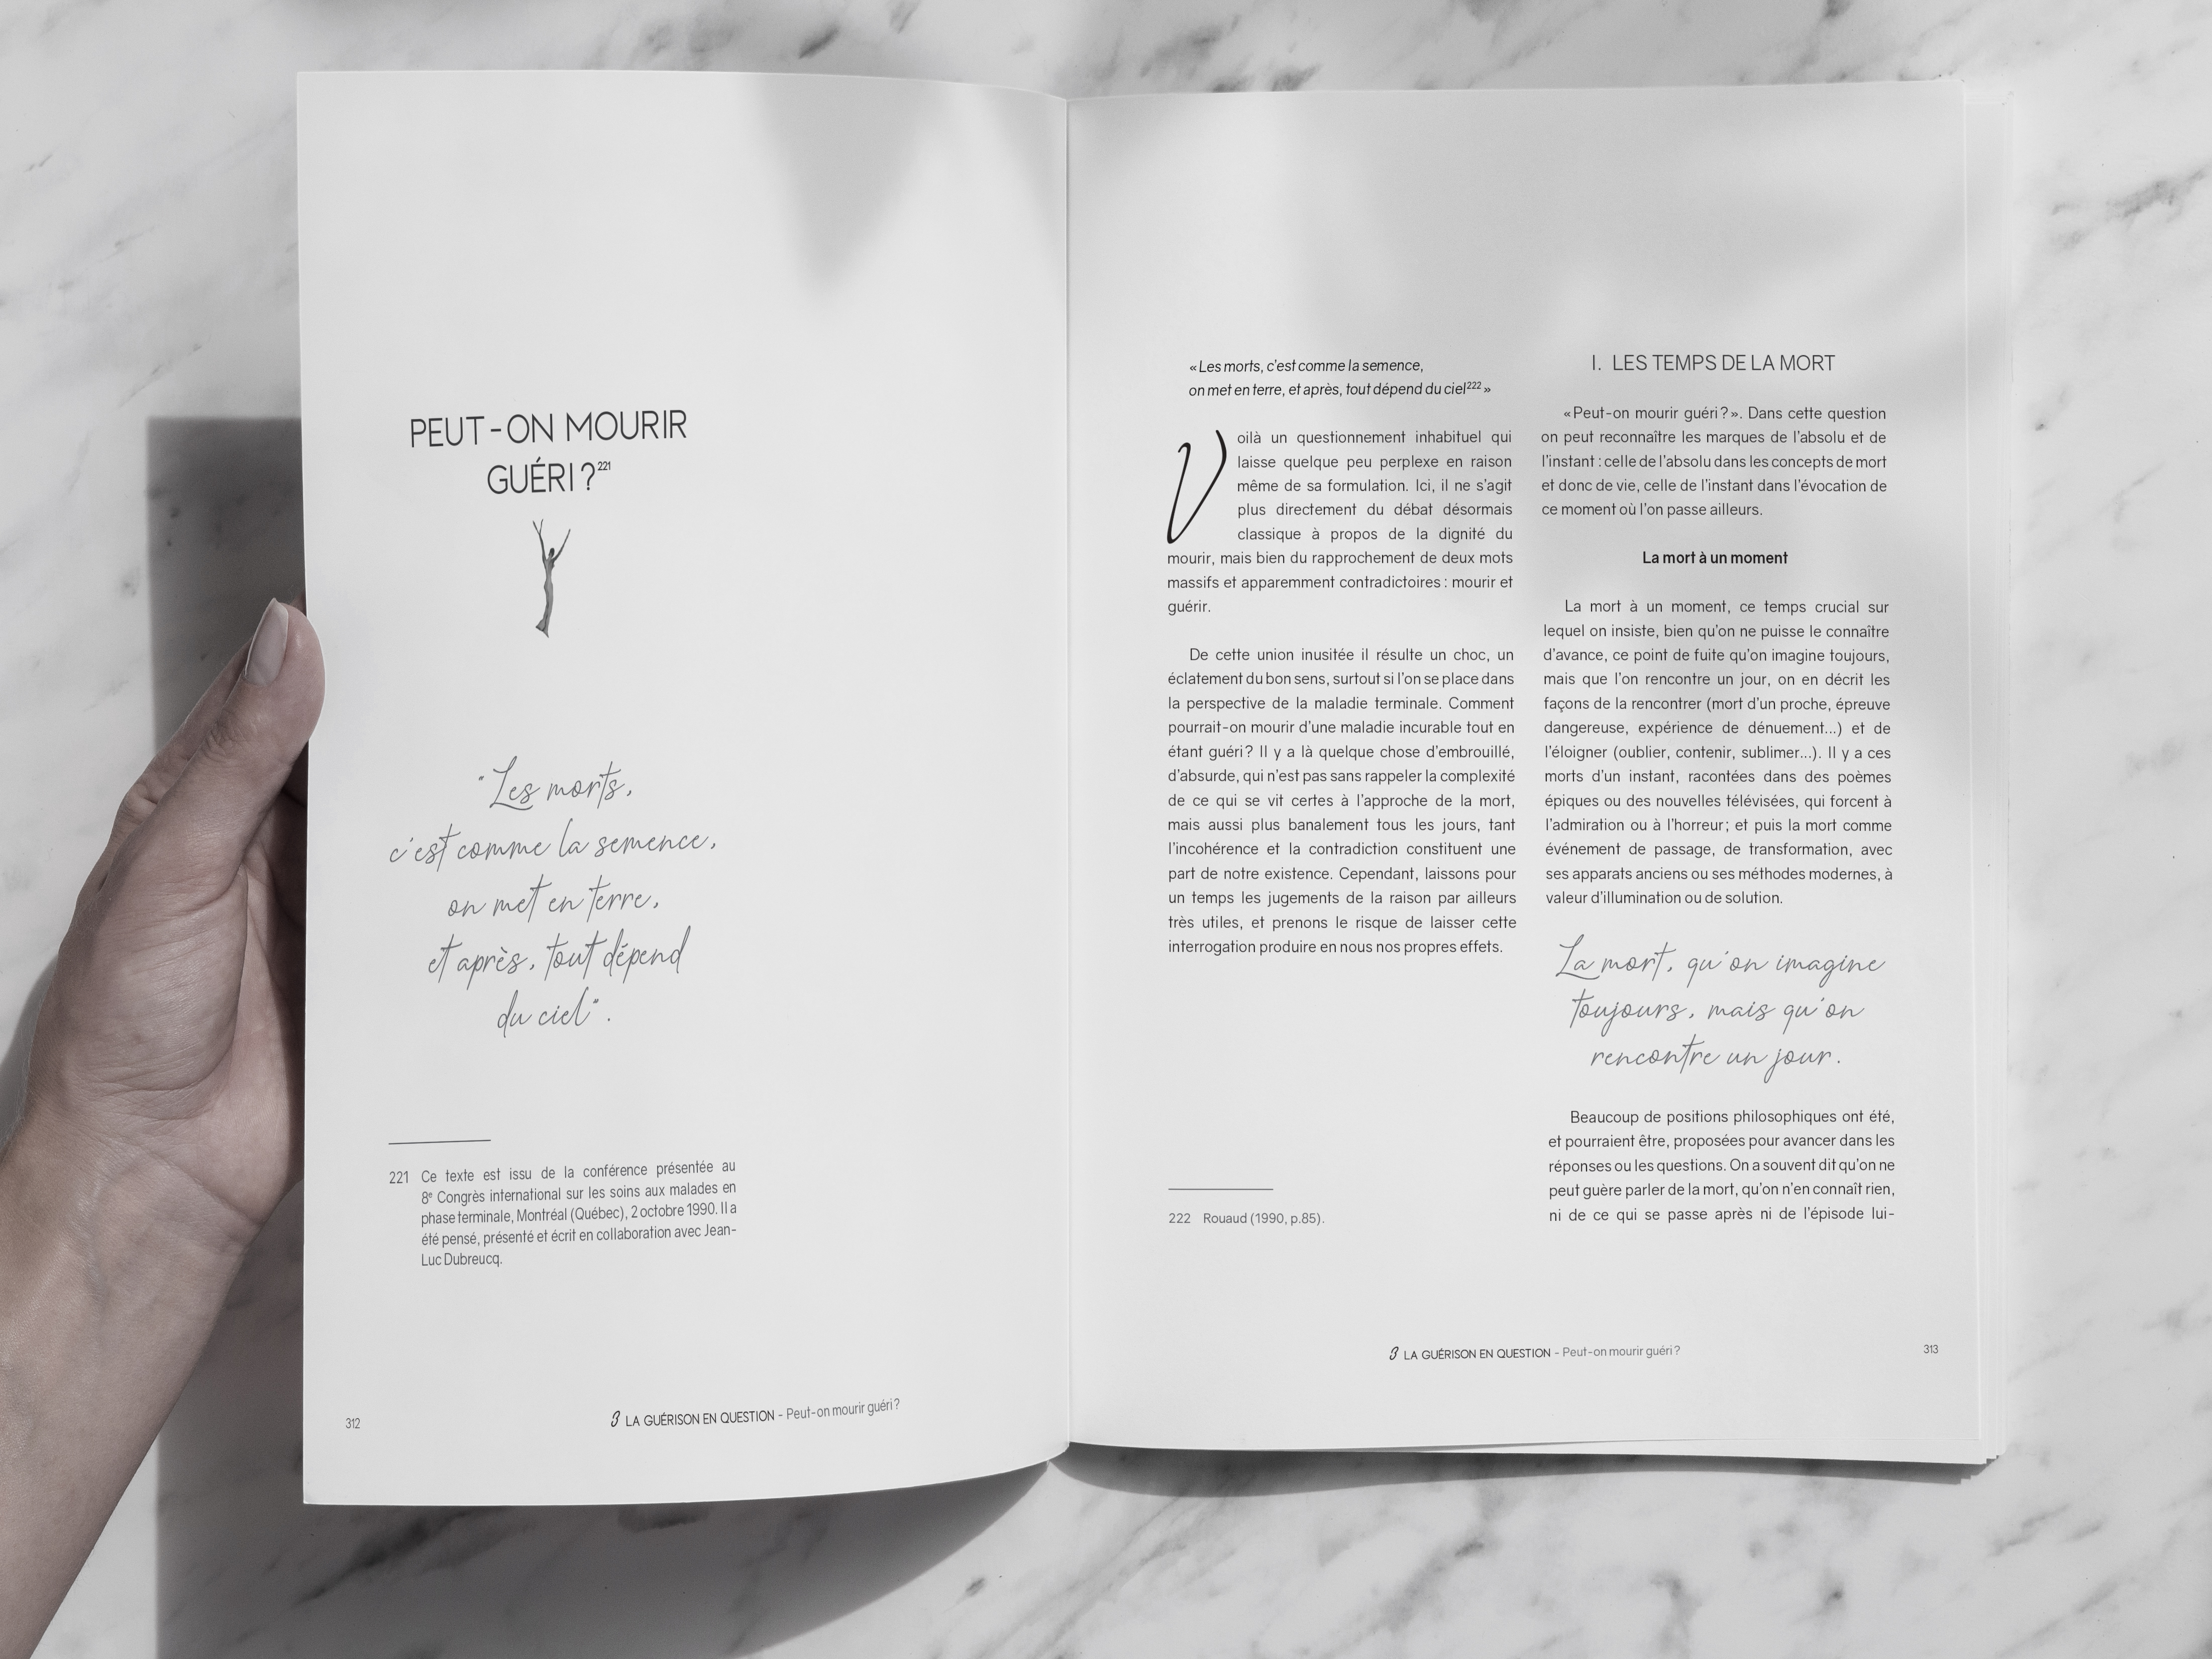 PEUT-ON MOURIR
GUÉRI ?²²¹
"Les morts,
c'est comme la semence,
on met en terre,
et après, tout dépend
du ciel".
221 Ce texte est issu de la conférence présentée au
8ᵉ Congrès international sur les soins aux malades en
phase terminale, Montréal (Québec), 2 octobre 1990. Il a
été pensé, présenté et écrit en collaboration avec Jean-
Luc Dubreucq.
312
3 LA GUÉRISON EN QUESTION - Peut-on mourir guéri ?
« Les morts, c'est comme la semence,
on met en terre, et après, tout dépend du ciel²²² »
Voilà un questionnement inhabituel qui
laisse quelque peu perplexe en raison
même de sa formulation. Ici, il ne s'agit
plus directement du débat désormais
classique à propos de la dignité du
mourir, mais bien du rapprochement de deux mots
massifs et apparemment contradictoires : mourir et
guérir.
De cette union inusitée il résulte un choc, un
éclatement du bon sens, surtout si l'on se place dans
la perspective de la maladie terminale. Comment
pourrait-on mourir d'une maladie incurable tout en
étant guéri ? Il y a là quelque chose d'embrouillé,
d'absurde, qui n'est pas sans rappeler la complexité
de ce qui se vit certes à l'approche de la mort,
mais aussi plus banalement tous les jours, tant
l'incohérence et la contradiction constituent une
part de notre existence. Cependant, laissons pour
un temps les jugements de la raison par ailleurs
très utiles, et prenons le risque de laisser cette
interrogation produire en nous nos propres effets.
222 Rouaud (1990, p.85).
I. LES TEMPS DE LA MORT
« Peut-on mourir guéri ? ». Dans cette question
on peut reconnaître les marques de l'absolu et de
l'instant : celle de l'absolu dans les concepts de mort
et donc de vie, celle de l'instant dans l'évocation de
ce moment où l'on passe ailleurs.
La mort à un moment
La mort à un moment, ce temps crucial sur
lequel on insiste, bien qu'on ne puisse le connaître
d'avance, ce point de fuite qu'on imagine toujours,
mais que l'on rencontre un jour, on en décrit les
façons de la rencontrer (mort d'un proche, épreuve
dangereuse, expérience de dénuement...) et de
l'éloigner (oublier, contenir, sublimer...). Il y a ces
morts d'un instant, racontées dans des poèmes
épiques ou des nouvelles télévisées, qui forcent à
l'admiration ou à l'horreur ; et puis la mort comme
événement de passage, de transformation, avec
ses apparats anciens ou ses méthodes modernes, à
valeur d'illumination ou de solution.
La mort, qu'on imagine
toujours, mais qu'on
rencontre un jour.
Beaucoup de positions philosophiques ont été,
et pourraient être, proposées pour avancer dans les
réponses ou les questions. On a souvent dit qu'on ne
peut guère parler de la mort, qu'on n'en connaît rien,
ni de ce qui se passe après ni de l'épisode lui-
3 LA GUÉRISON EN QUESTION - Peut-on mourir guéri ?
313